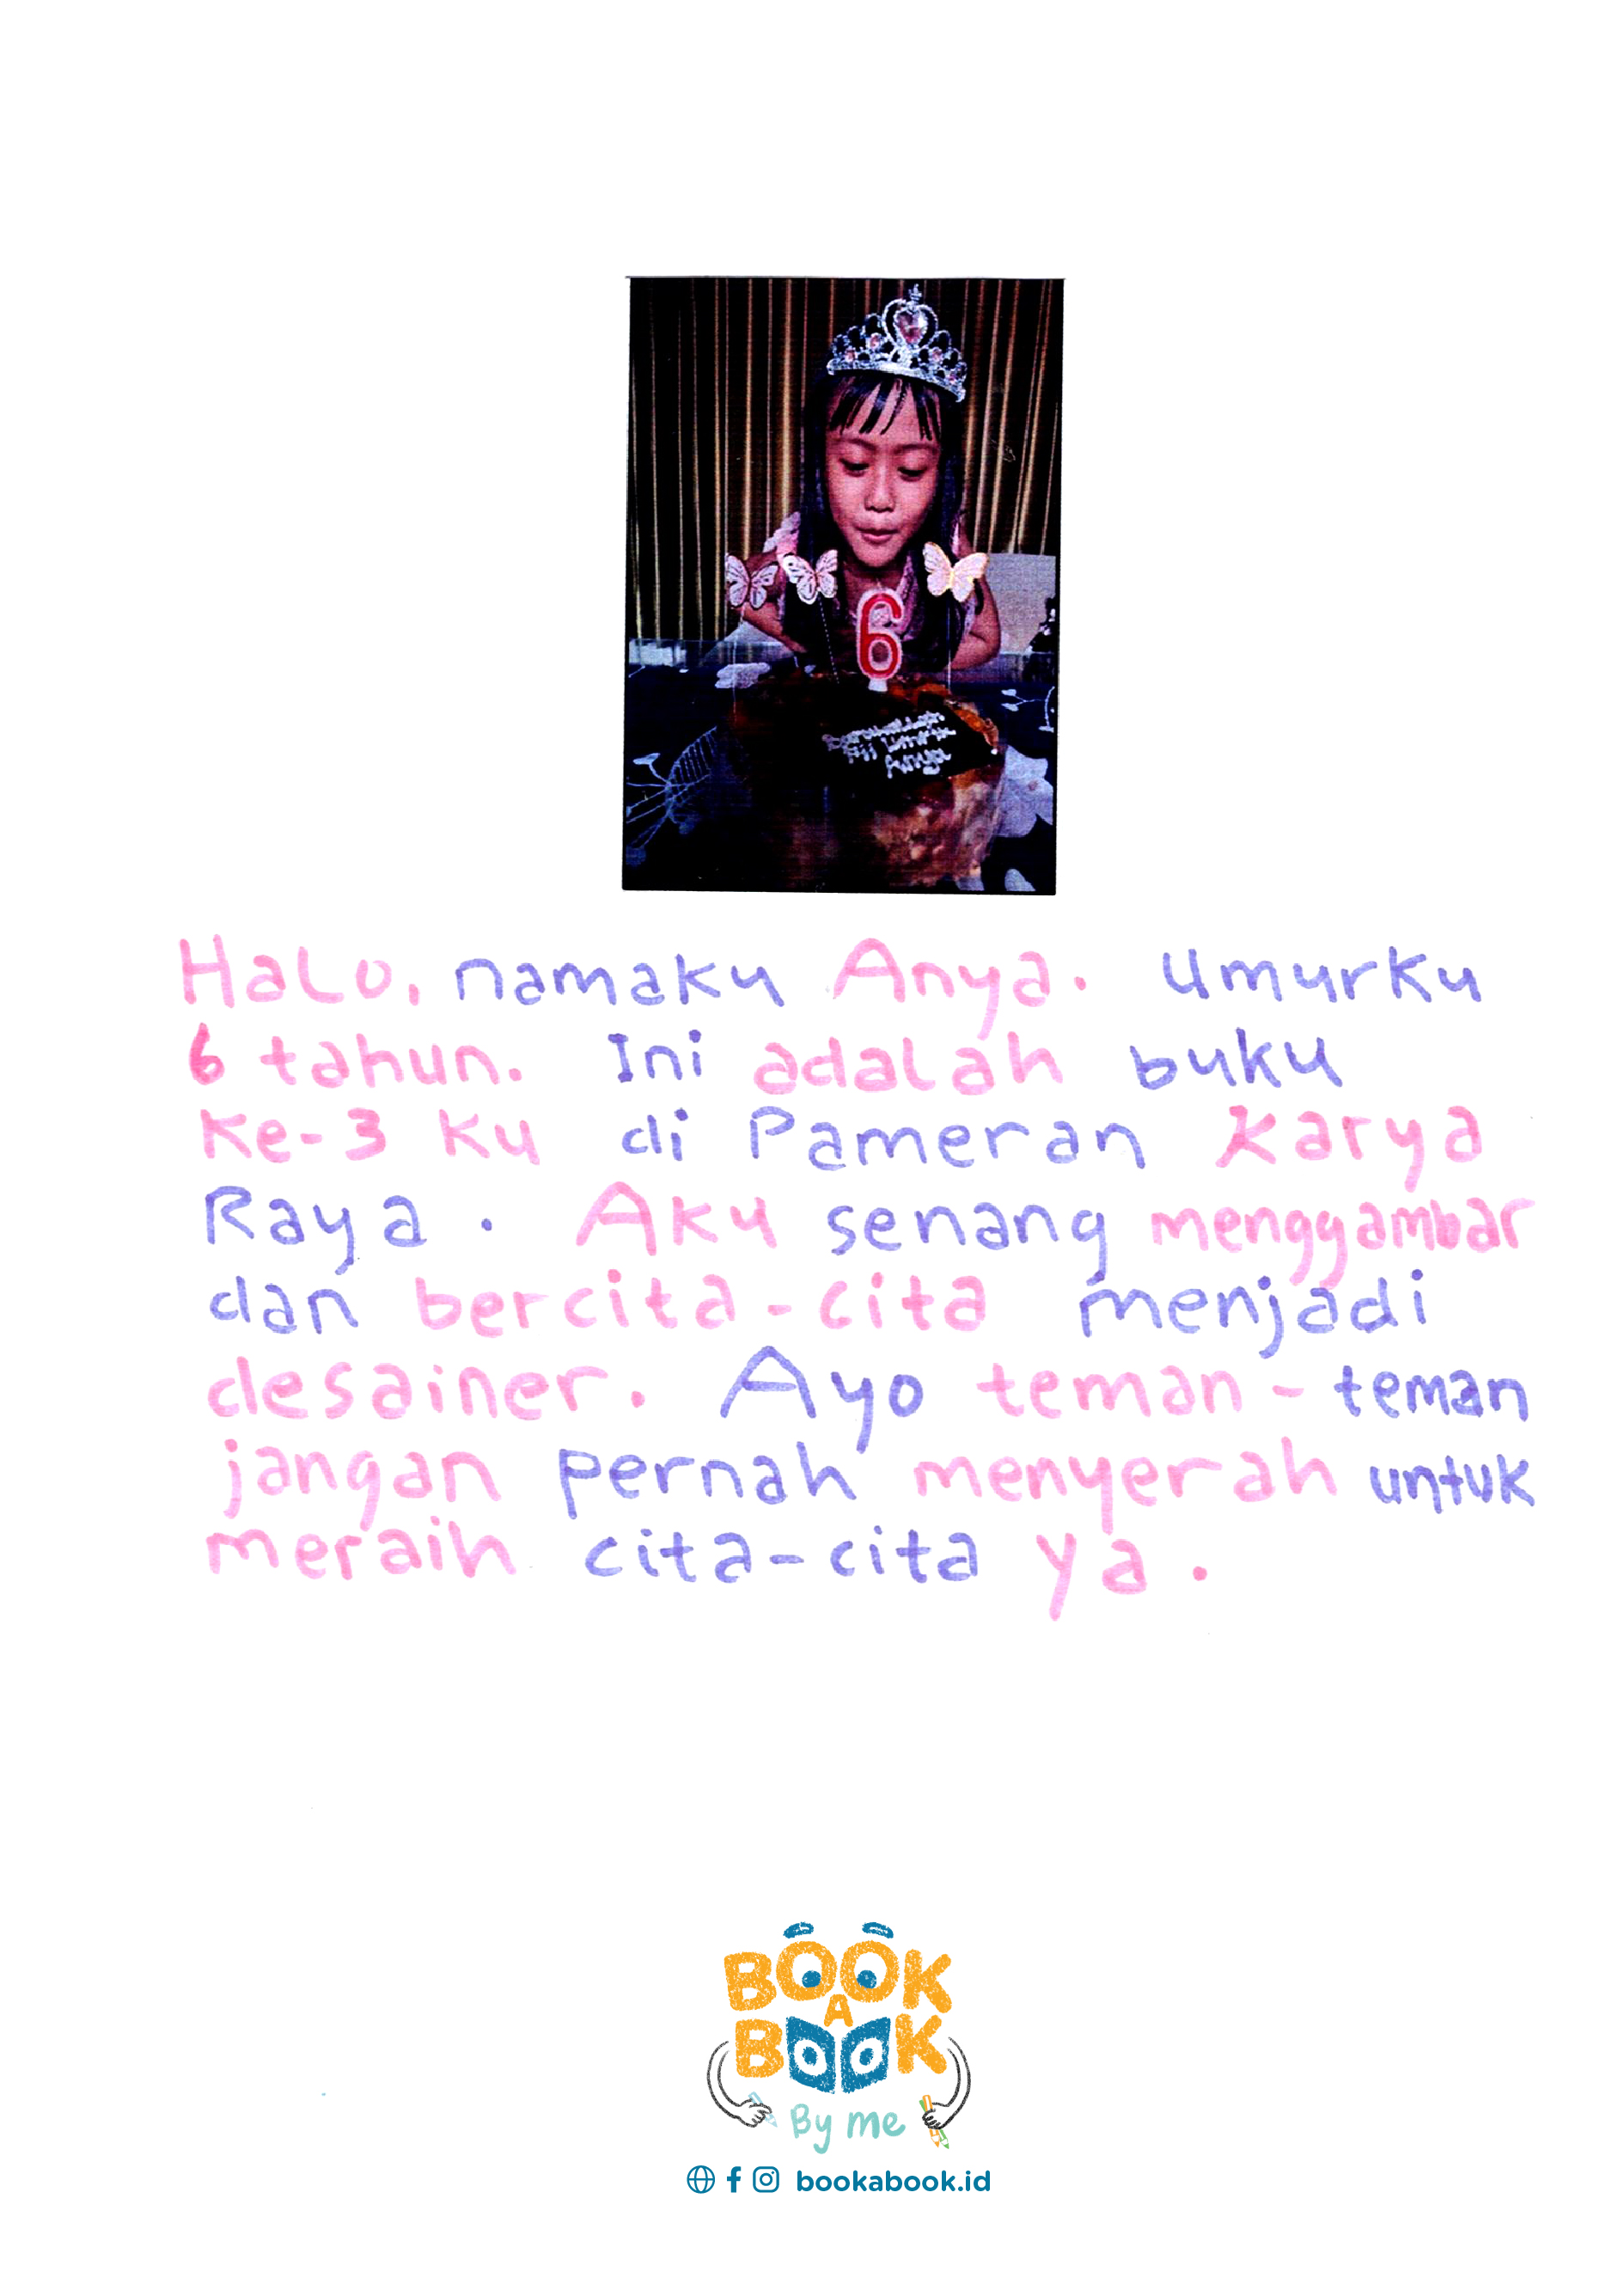 6
Anya
Halo, namaku Anya. Umurku
6 tahun. Ini adalah buku
Ke-3 Ku di Pameran Karya
Raya. Aku senang menggambar
dan bercita-cita menjadi
desainer. Ayo teman-teman
jangan pernah menyerah untuk
meraih cita-cita ya.
BOOK
A
BOOK
By me
bookabook.id